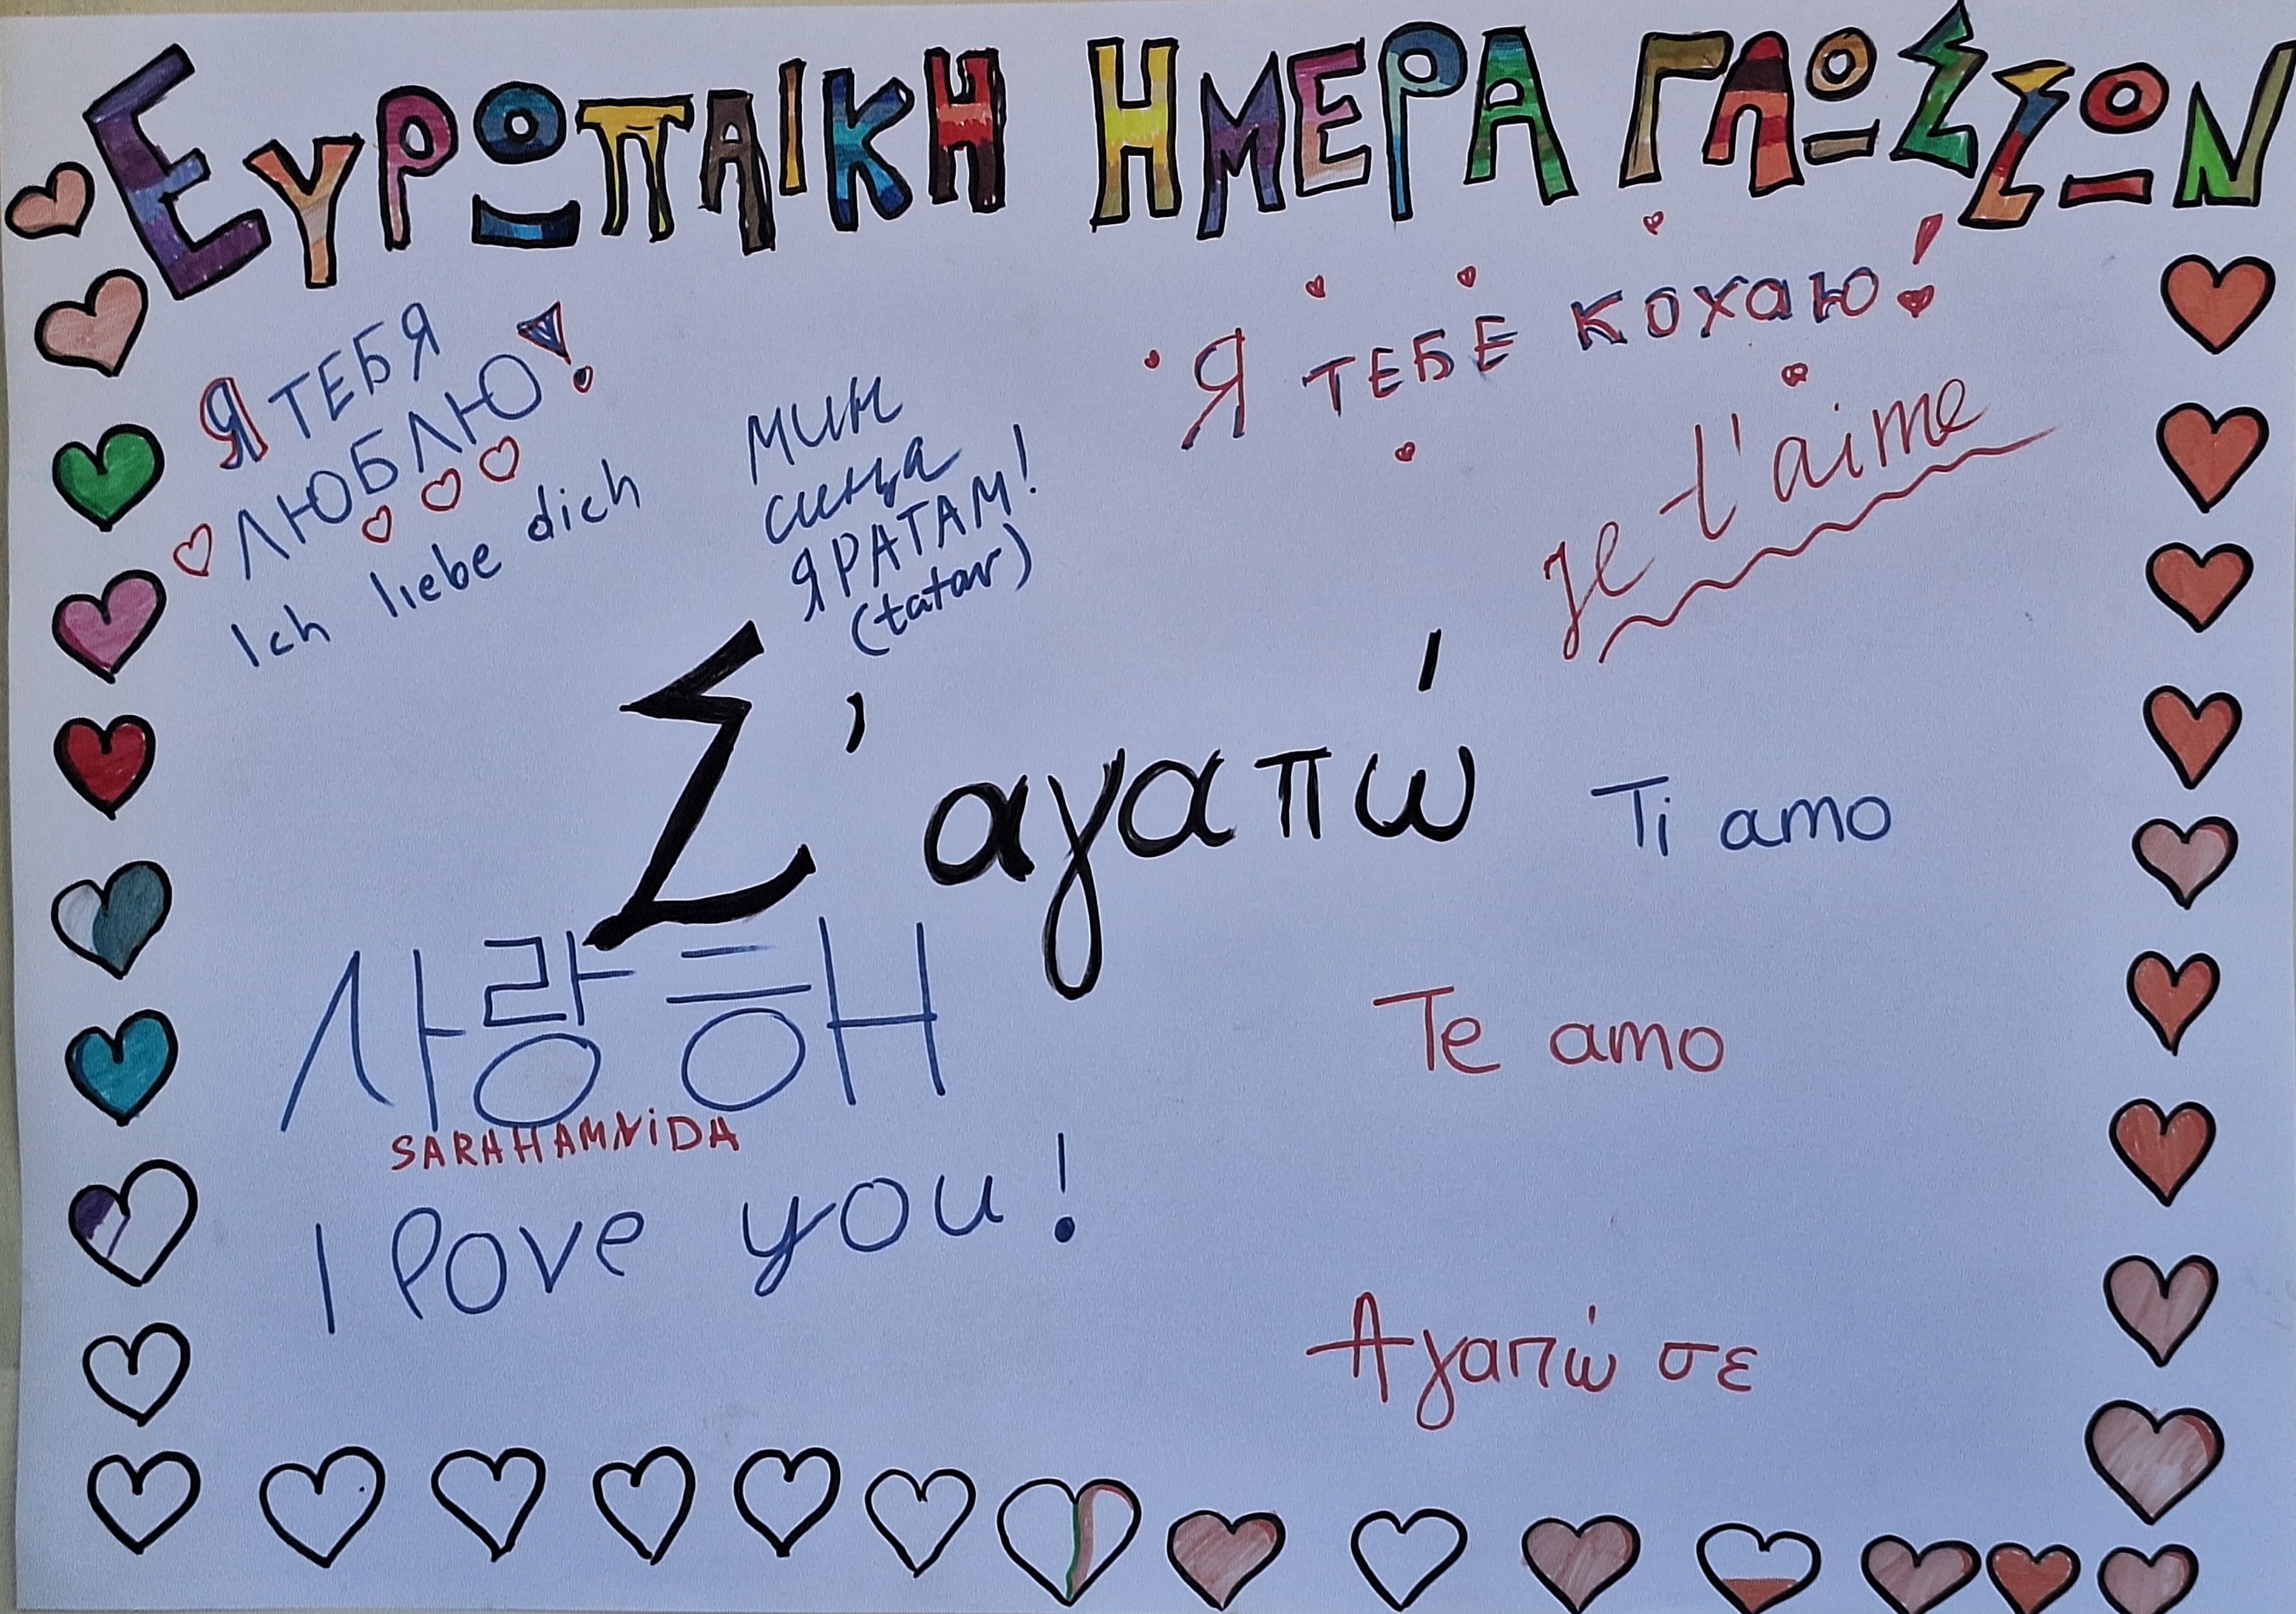 ΕΥΡΩΠΑΙΚΗ ΗΜΕΡΑ ΓΛΩΣΣΩΝ
Я ТЕБЯ
ЛЮБЛЮ!
Ich liebe dich
МИН
сиңа
ЯРАТАМ!
(tatar)
Я ТЕБЕ КОХАЮ!
je t'aime
Σ'αγαπώ
Ti amo
사랑해
SARAHAMNiDA
Te amo
I love you!
Αγαπώ σε